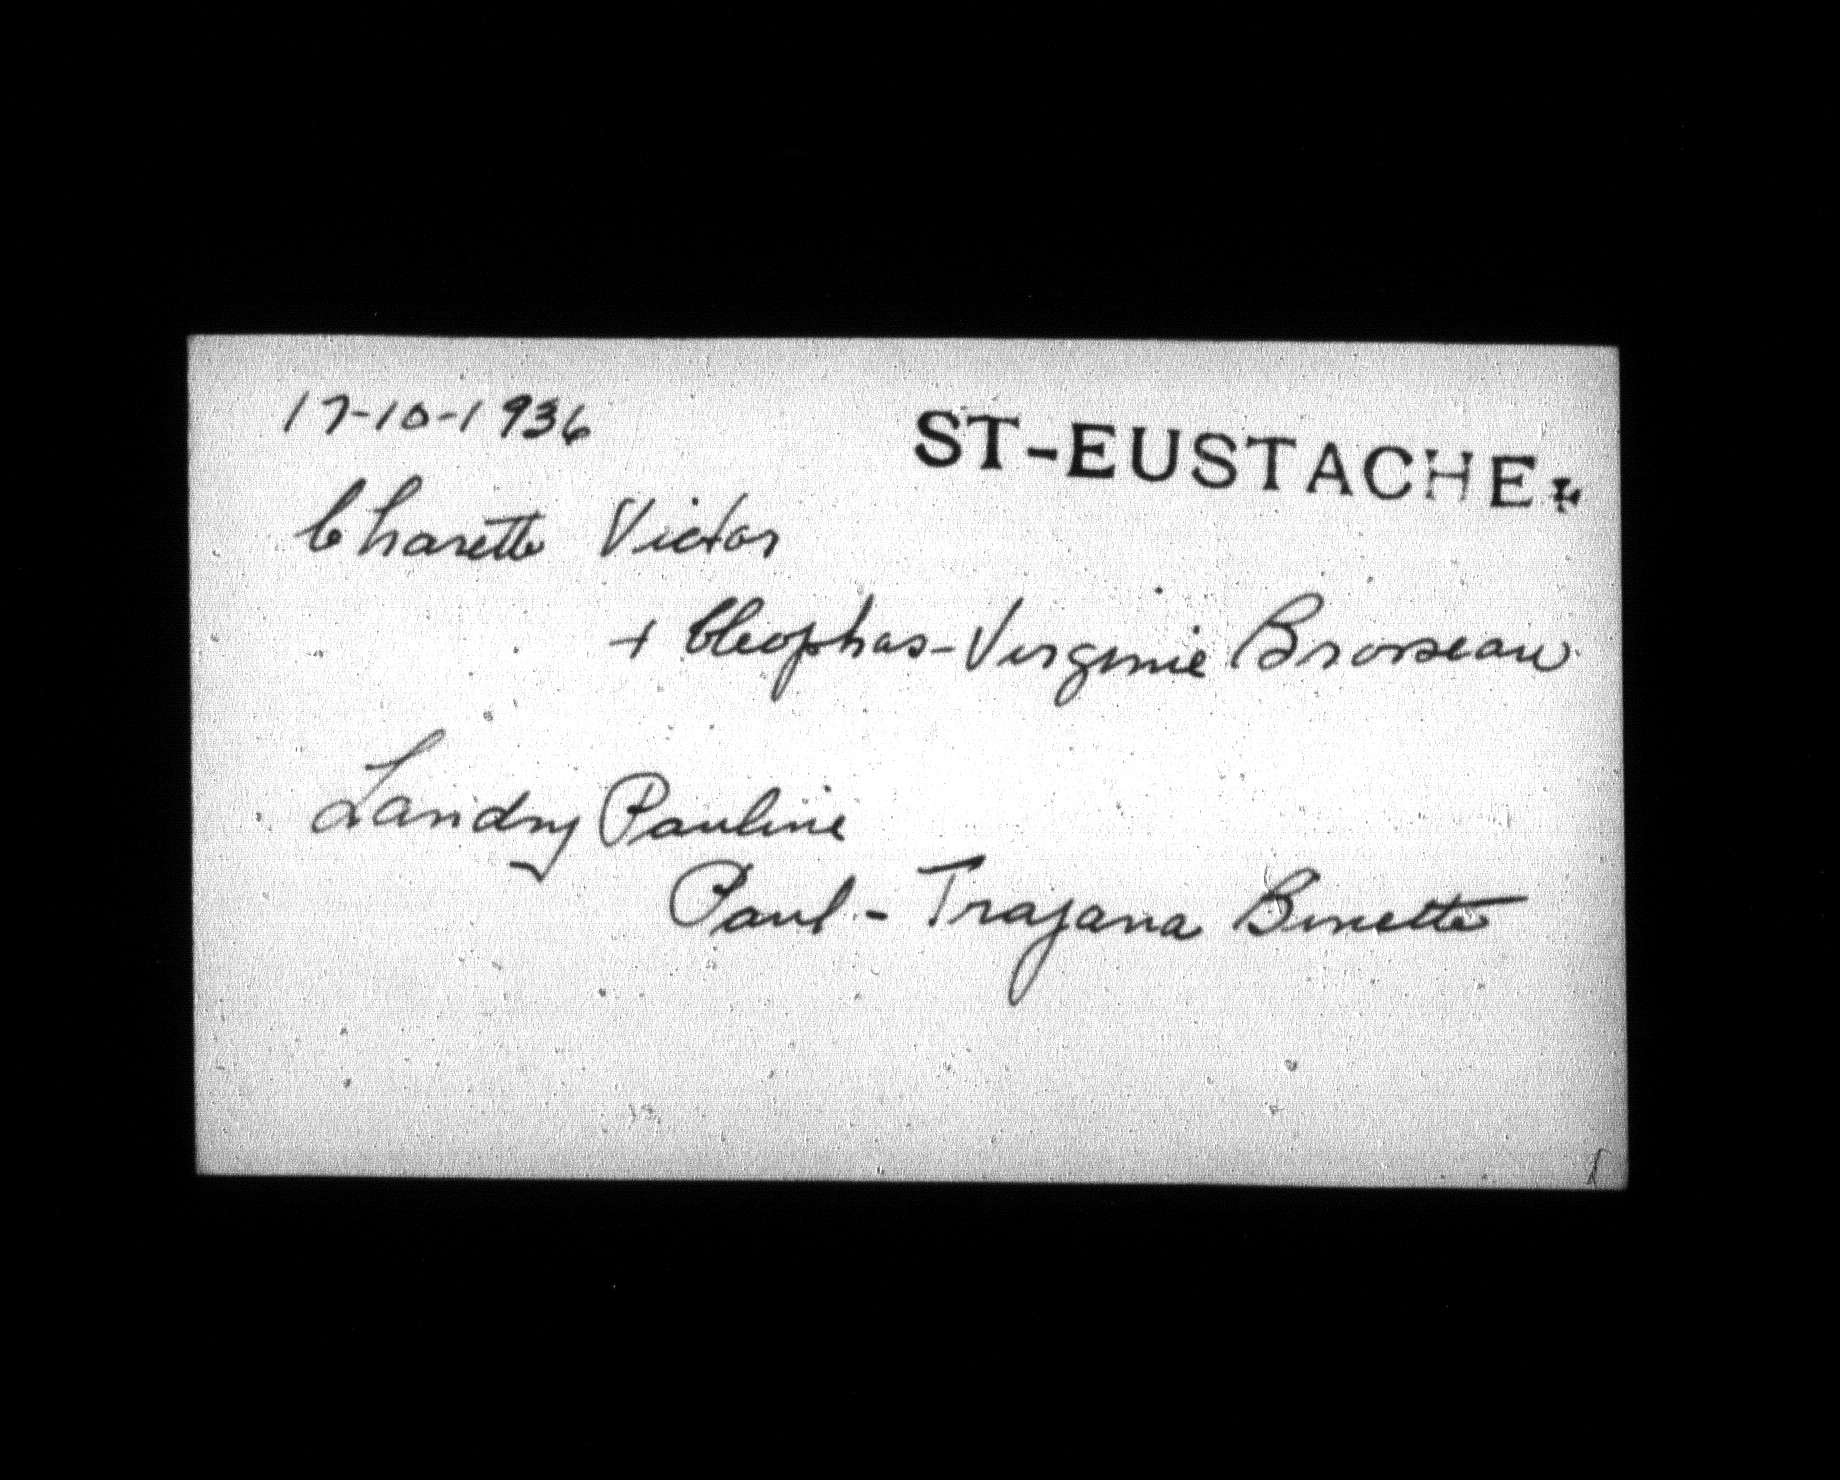 17-10-1936
ST-EUSTACHE
Charette Victor
+ Cleophas-Virginie Brosseau
Landry Pauline
Paul - Trajana Binette